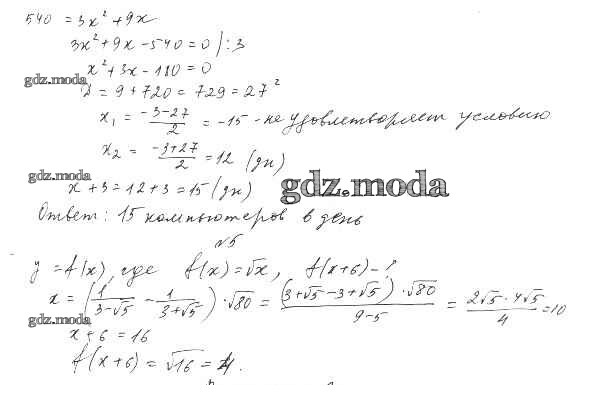 540 = 3x² + 9x
3x² + 9x - 540 = 0 /:3
x² + 3x - 180 = 0
gdz.moda
D = 9 + 720 = 729 = 27²
x₁ = (-3-27)/2 = -15 - не удовлетворяет условию
x₂ = (-3+27)/2 = 12 (дн)
gdz.moda
x + 3 = 12 + 3 = 15 (дн)
gdz.moda
Ответ: 15 компьютеров в день
№5
y = f(x), где f(x) = √x, f(x+6) - ?
x = (1/(3-√5) - 1/(3+√5)) · √80 = ((3+√5-3+√5) · √80)/(9-5) = (2√5 · 4√5)/4 = 10
gdz.moda
x + 6 = 16
f(x+6) = √16 = 4.